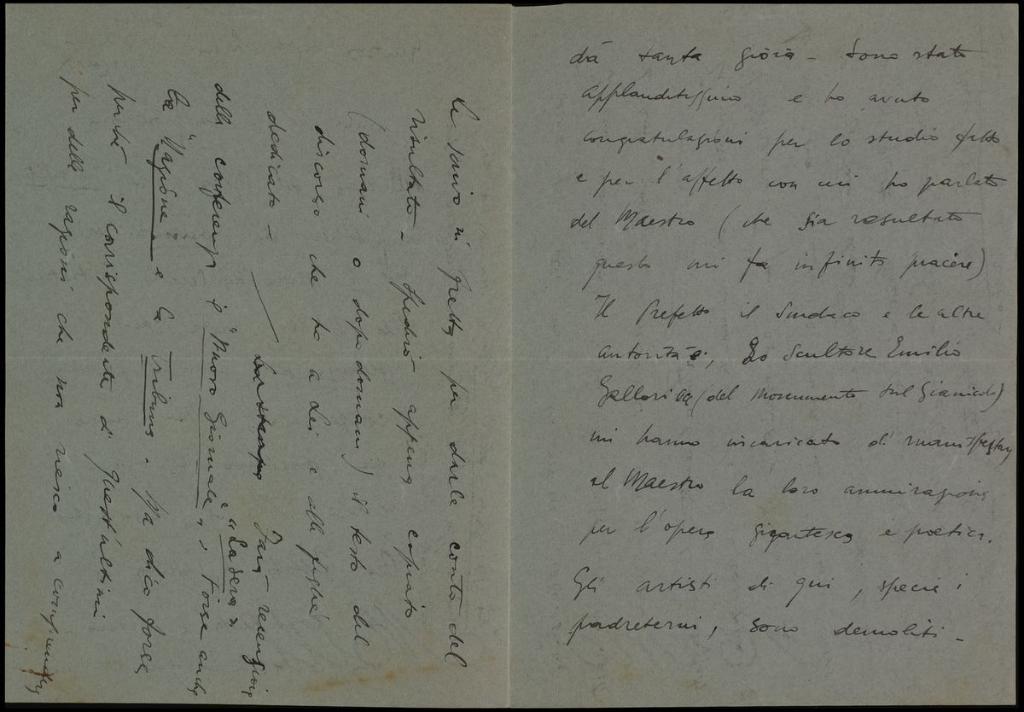 dà tanta gioia - Sono stato
applauditissimo e ho avuto
congratulazioni per lo studio fatto
e per l'affetto con cui ho parlato
del Maestro (che sia resultato
questo mi fa infinito piacere)
Il Prefetto il Sindaco e le altre
autorità, Lo Scultore Emilio
Gallori (del monumento sul Gianicolo)
mi hanno incaricato di manifestare
al Maestro la loro ammirazione
per l'opera gigantesca e poetica.
Gli artisti di qui, specie i
padreterni, sono demoliti -
Le scrivo in fretta per darle conto del
risultato - Spedirò appena copiato
(domani o dopodomani) il testo del
discorso che ho a Lei e alle figlie
dedicato -
Farà recensioni
della conferenza il "Nuovo Giornale" e "La Sera",
Forse anche
la "Nazione" e la Tribuna. Ma dico forse
perché il corrispondente di quest'ultimi
per delle ragioni che non riesco a comprendere